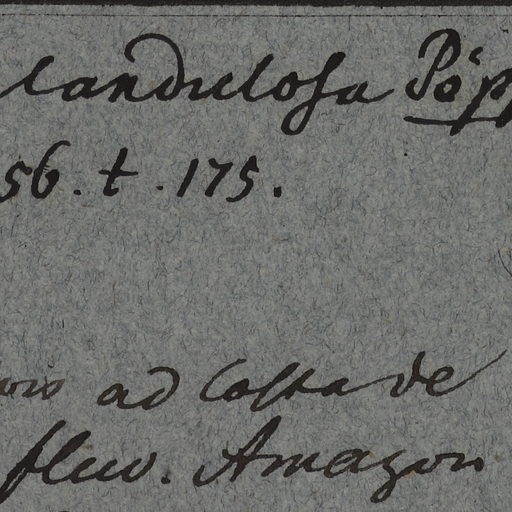 landulosa Pöp
56. t. 175.
ad Costa de
fluv. Amazon